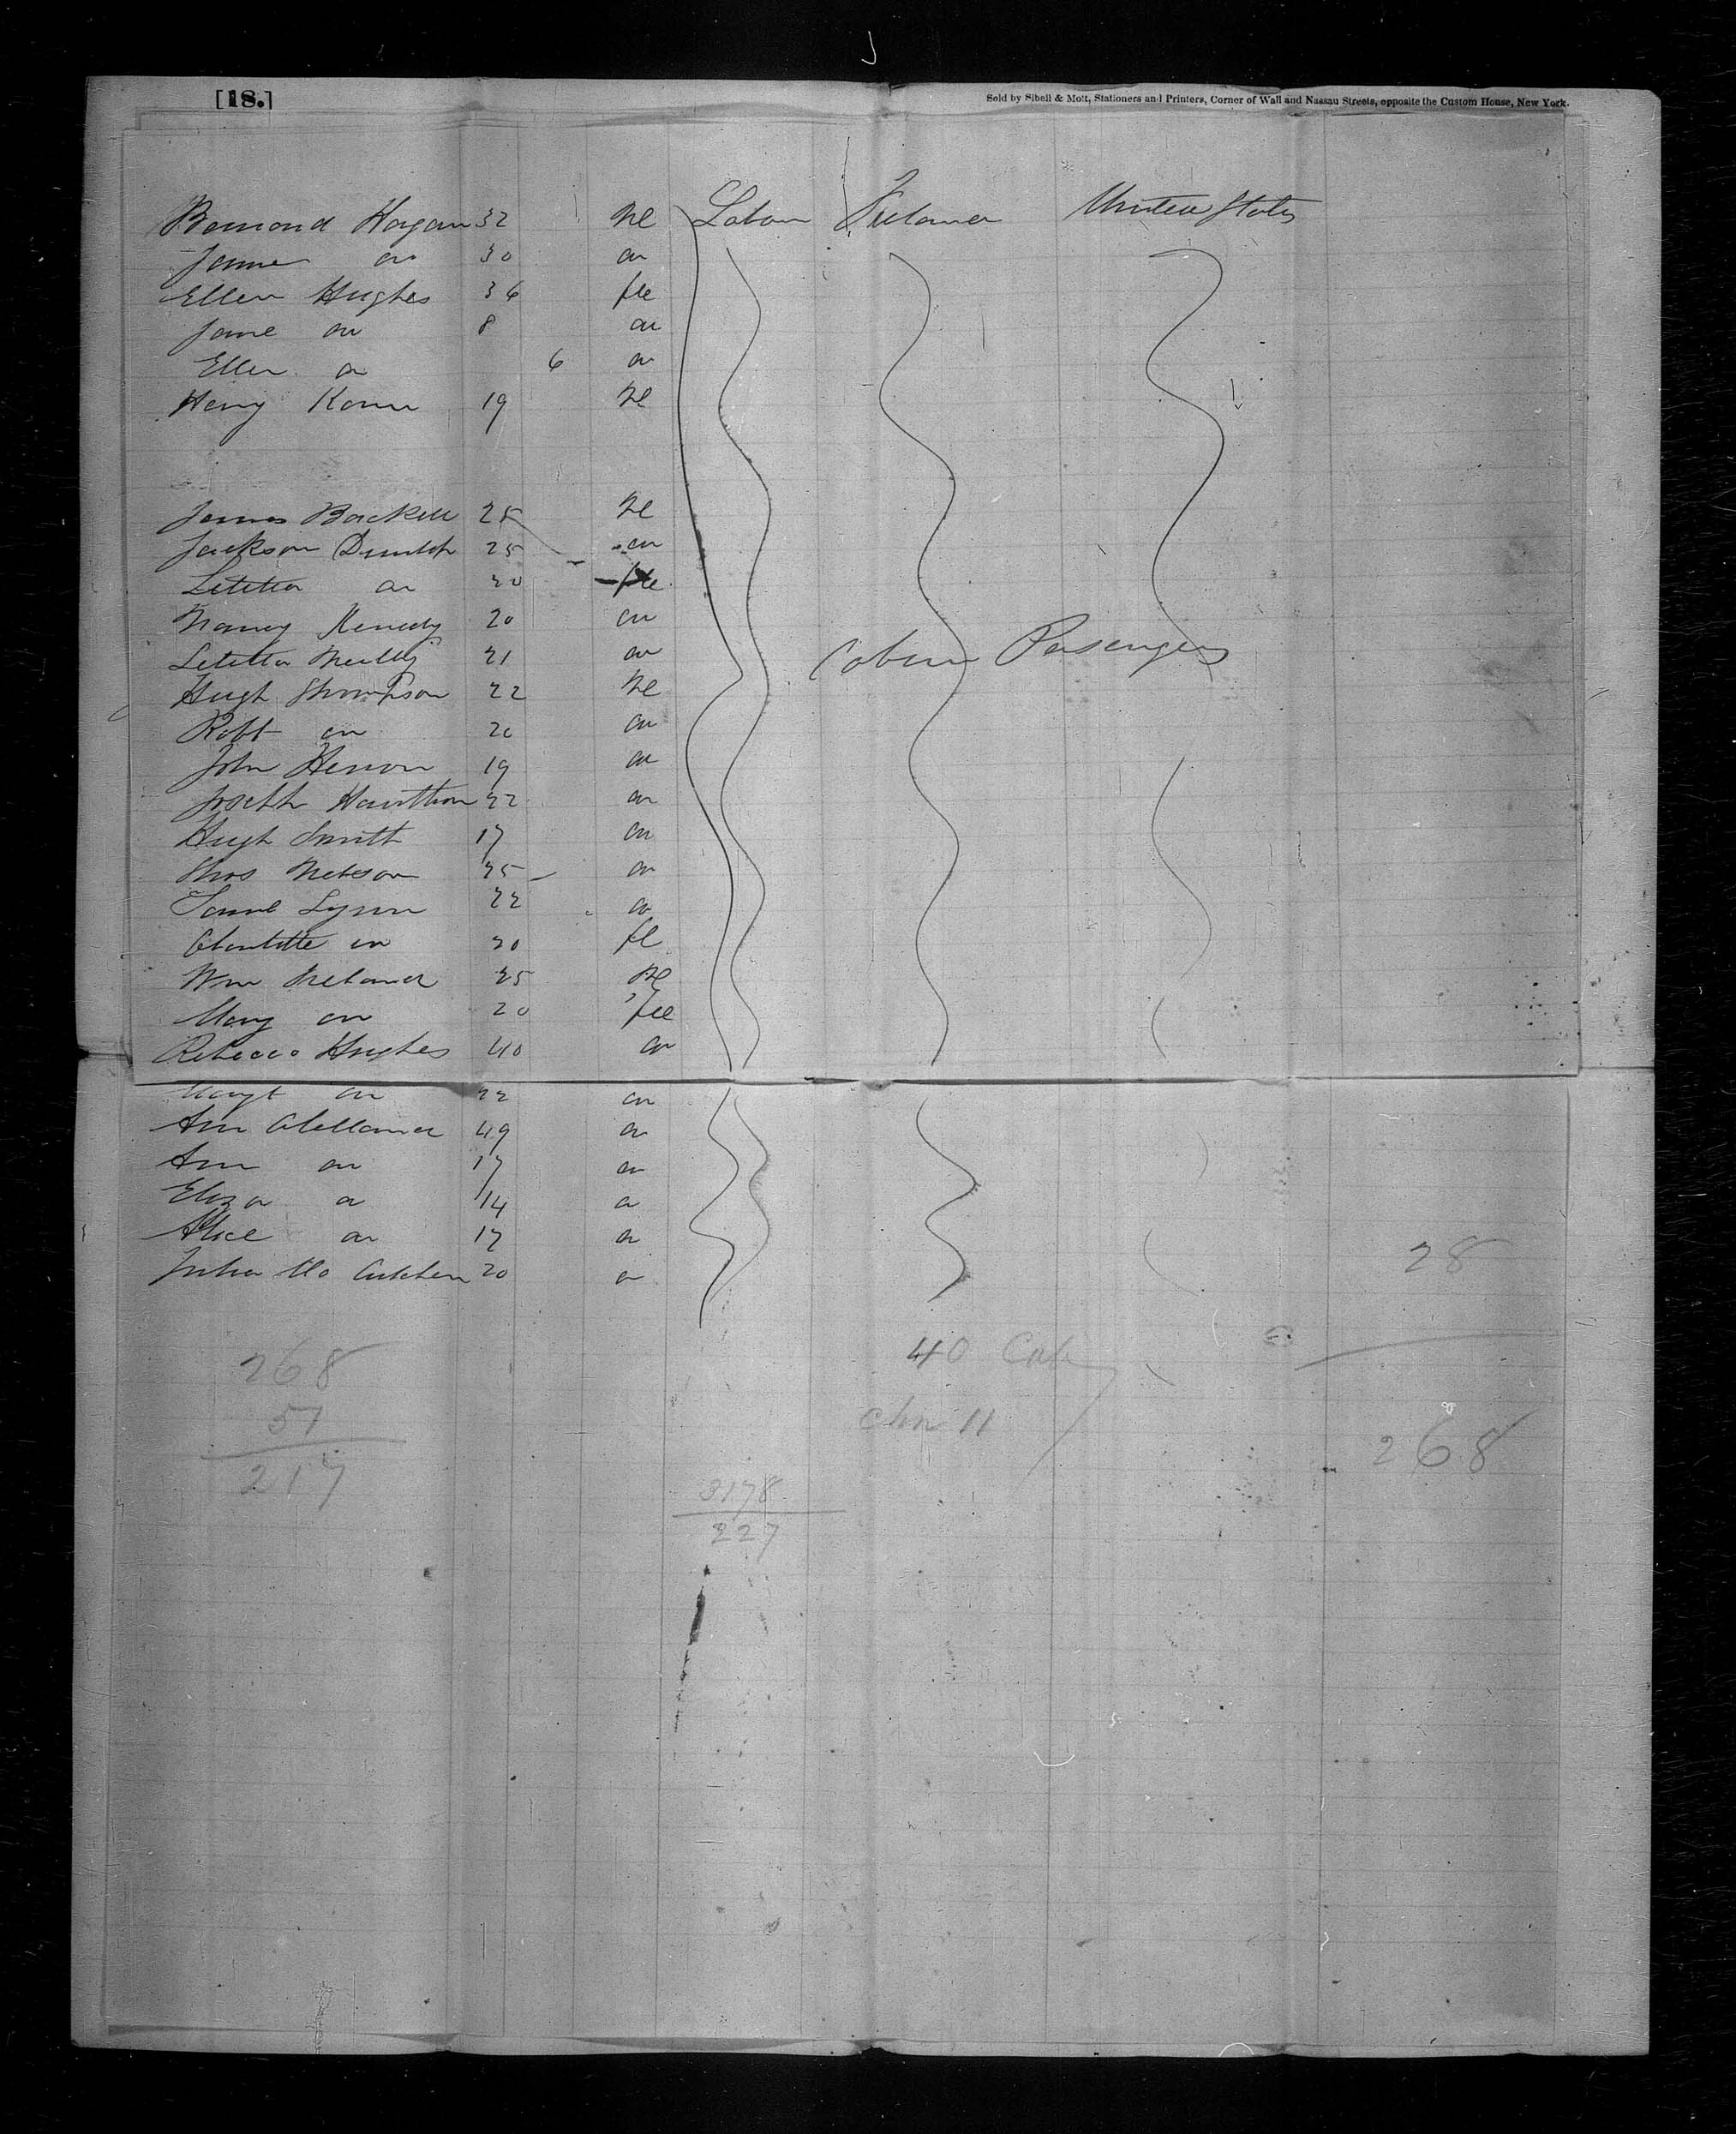 [18.]
Sold by Sibell & Mott, Stationers and Printers, Corner of Wall and Nassau Streets, opposite the Custom House, New York.
Hagan 32 Ml Labor Ireland United States
Jane do 30 do
Ellen Hughes 36 fle
Jane do 8 do
Ellen do 6 do
Henry 19 Ml
James 25 Ml
Jackson Dunlop 25 do
Letitia do 20 fle
Nancy Kenedy 20 do
Letitia 21 do
Hugh Thompson 22 Ml
Robt do 20 do
John Herron 19 do
Joseph Hawthorn 22 do
Hugh Smith 17 do
Thos Nelson 25 do
Saml Lynn 22 do
Charlotte do 20 fle
Wm Ireland 25 Ml
Mary do 20 fle
Rebecca Hughes 40 do
Cabin Passengers
Margt do 22 do
Ann 49 do
Ann do 17 do
Eliza do 14 do
Alice do 17 do
Julia Mc 20 do
28
40 Cab
268
51
217
11
268
3178
227